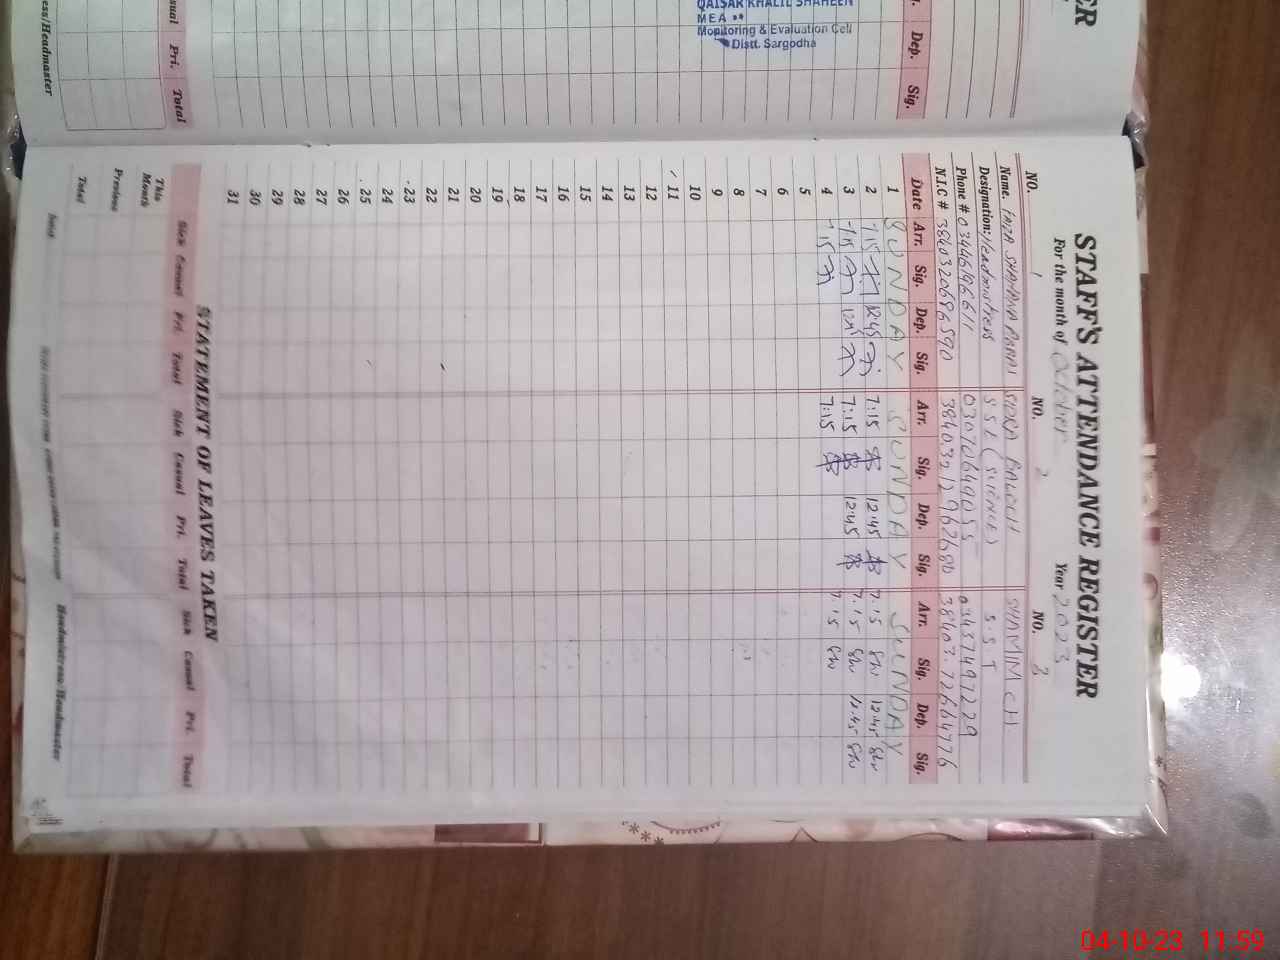 ER
QAISAR KHALIL SHAHEEN
MEA **
Monitoring & Evaluation Cell
Distt. Sargodha
Dep. Sig.
Pri. Total
ess/Headmaster
STAFF'S ATTENDANCE REGISTER
For the month of October Year 2023
NO. 1 NO. 2 NO. 3
Name. SHABANA SIDRA BALOCH SHAMIM CH
Designation: Headmistress S S E (SCIENCE) S.S T
Phone # 03446196611 03070649055 03457497229
N.I.C # 3840320686590 3840321296268 38403.72664776
Date Arr. Sig. Dep. Sig. Arr. Sig. Dep. Sig. Arr. Sig. Dep. Sig.
1 SUNDAY SUNDAY SUNDAY
2 7:15 12:45 7:15 12:45 7.15 12:45
3 7:15 12:45 7:15 12:45 7.15 12:45
4 7:15 7:15 7.15
5
6
7
8
9
10
11
12
13
14
15
16
17
18
19
20
21
22
23
24
25
26
27
28
29
30
31
STATEMENT OF LEAVES TAKEN
Sick Casual Pri. Total Sick Casual Pri. Total Sick Casual Pri. Total
This Month
Previous
Total
Headmistress/Headmaster
04-10-23 11:59